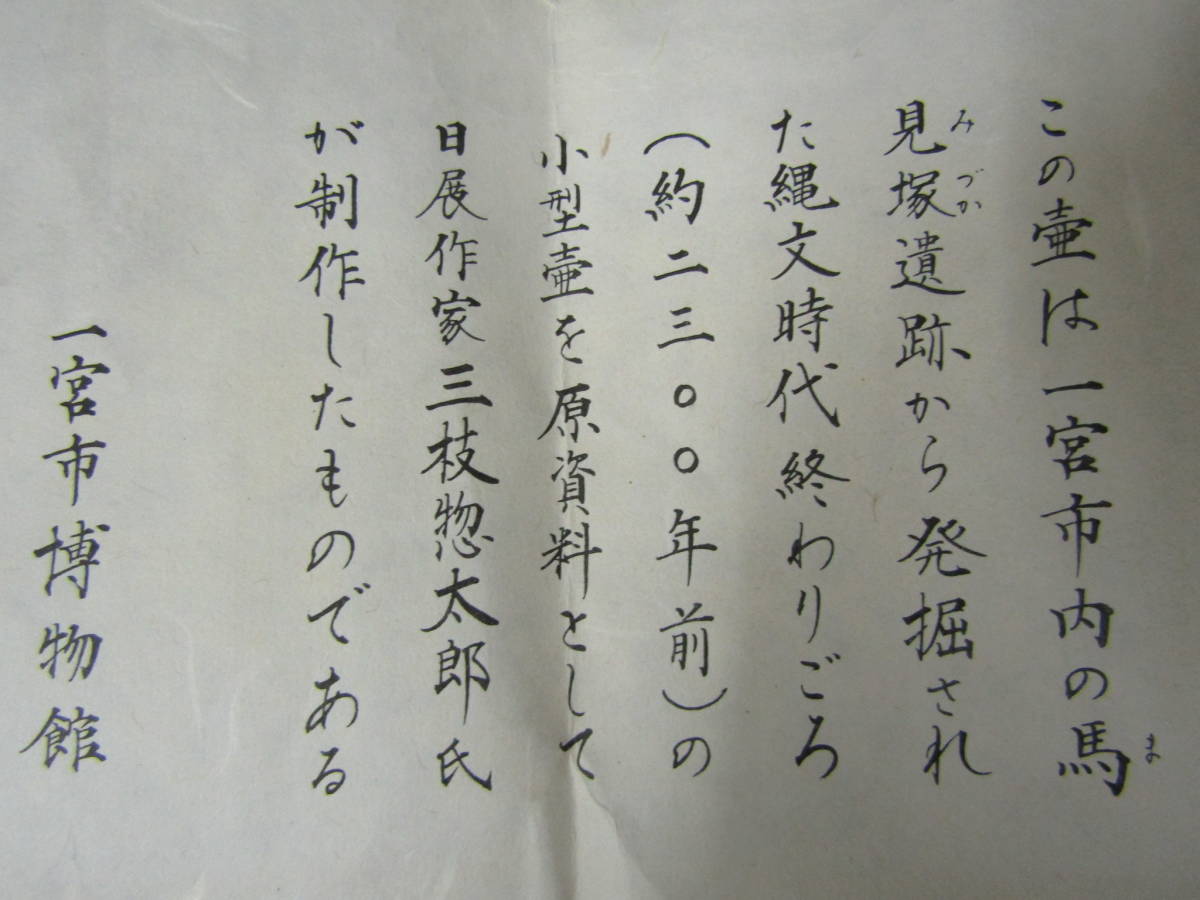 この壷は一宮市内の馬
見塚遺跡から発掘され
た縄文時代終わりごろ
（約二三〇〇年前）の
小型壷を原資料として
日展作家三枝惣太郎氏
が制作したものである
一宮市博物館
ま
みづか